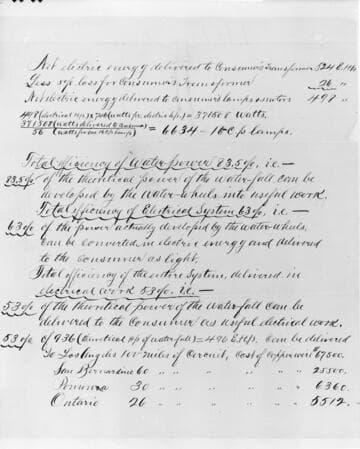 Net electric energy delivered to Consumer's Transformer 524 E.H.p.
Less 5% loss for Consumer's Transformer 26 "
Net electric energy delivered to consumer's lamps & motors 498 "
498 (electrical H.p.) x 746 (watts per electric h.p.) = 371508 Watts.
371508 (watts delivered to )
56 (watts per 16 c.p. lamp) = 6634 - 16 c.p. lamps.
Total efficiency of Water-power 83.5%. i.e. —
83.5% of the theoretical power of the water-fall can be
developed by the Water-wheels into useful work.
Total efficiency of Electrical System 63%. i.e. —
63% of the power actually developed by the water-wheels,
can be converted in electric energy and delivered
to the consumer as light.
Total efficiency of the entire System, delivered in
electrical work 53%. i.e. —
53% of the theoretical power of the waterfall can be
delivered to the Consumer as useful electrical work.
53% of 936 (theoretical H/p of waterfall) = 496 E.H.p. can be delivered
To Los Angeles 100 miles of Circuit, Cost of copper wire $67500.
San Bernardino 60 " " " " " 25500.
Pomona 30 " " " " " 6360.
Ontario 26 " " " " " 5512.